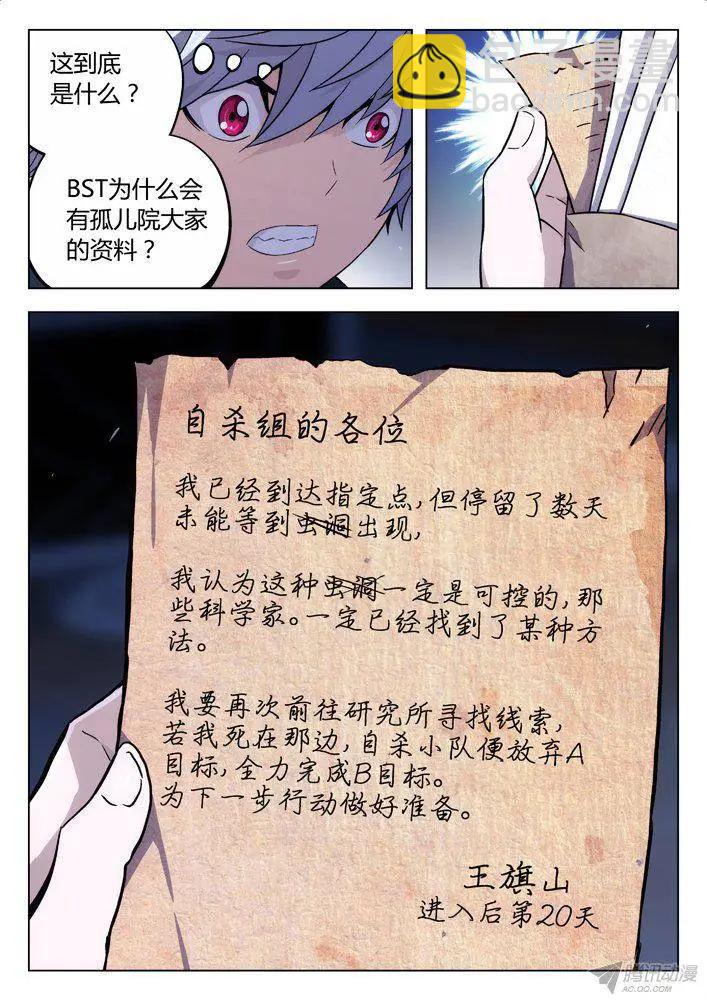 这到底
是什么？
BST为什么会
有孤儿院大家
的资料？
包子漫畫
baozimh.com
自杀组的各位
我已经到达指定点，但停留了数天
未能等到虫洞出现，
我认为这种虫洞一定是可控的，那
些科学家。一定已经找到了某种方
法。
我要再次前往研究所寻找线索，
若我死在那边，自杀小队便放弃A
目标，全力完成B目标。
为下一步行动做好准备。
王旗山
进入后第20天
腾讯动漫
AC.QQ.COM